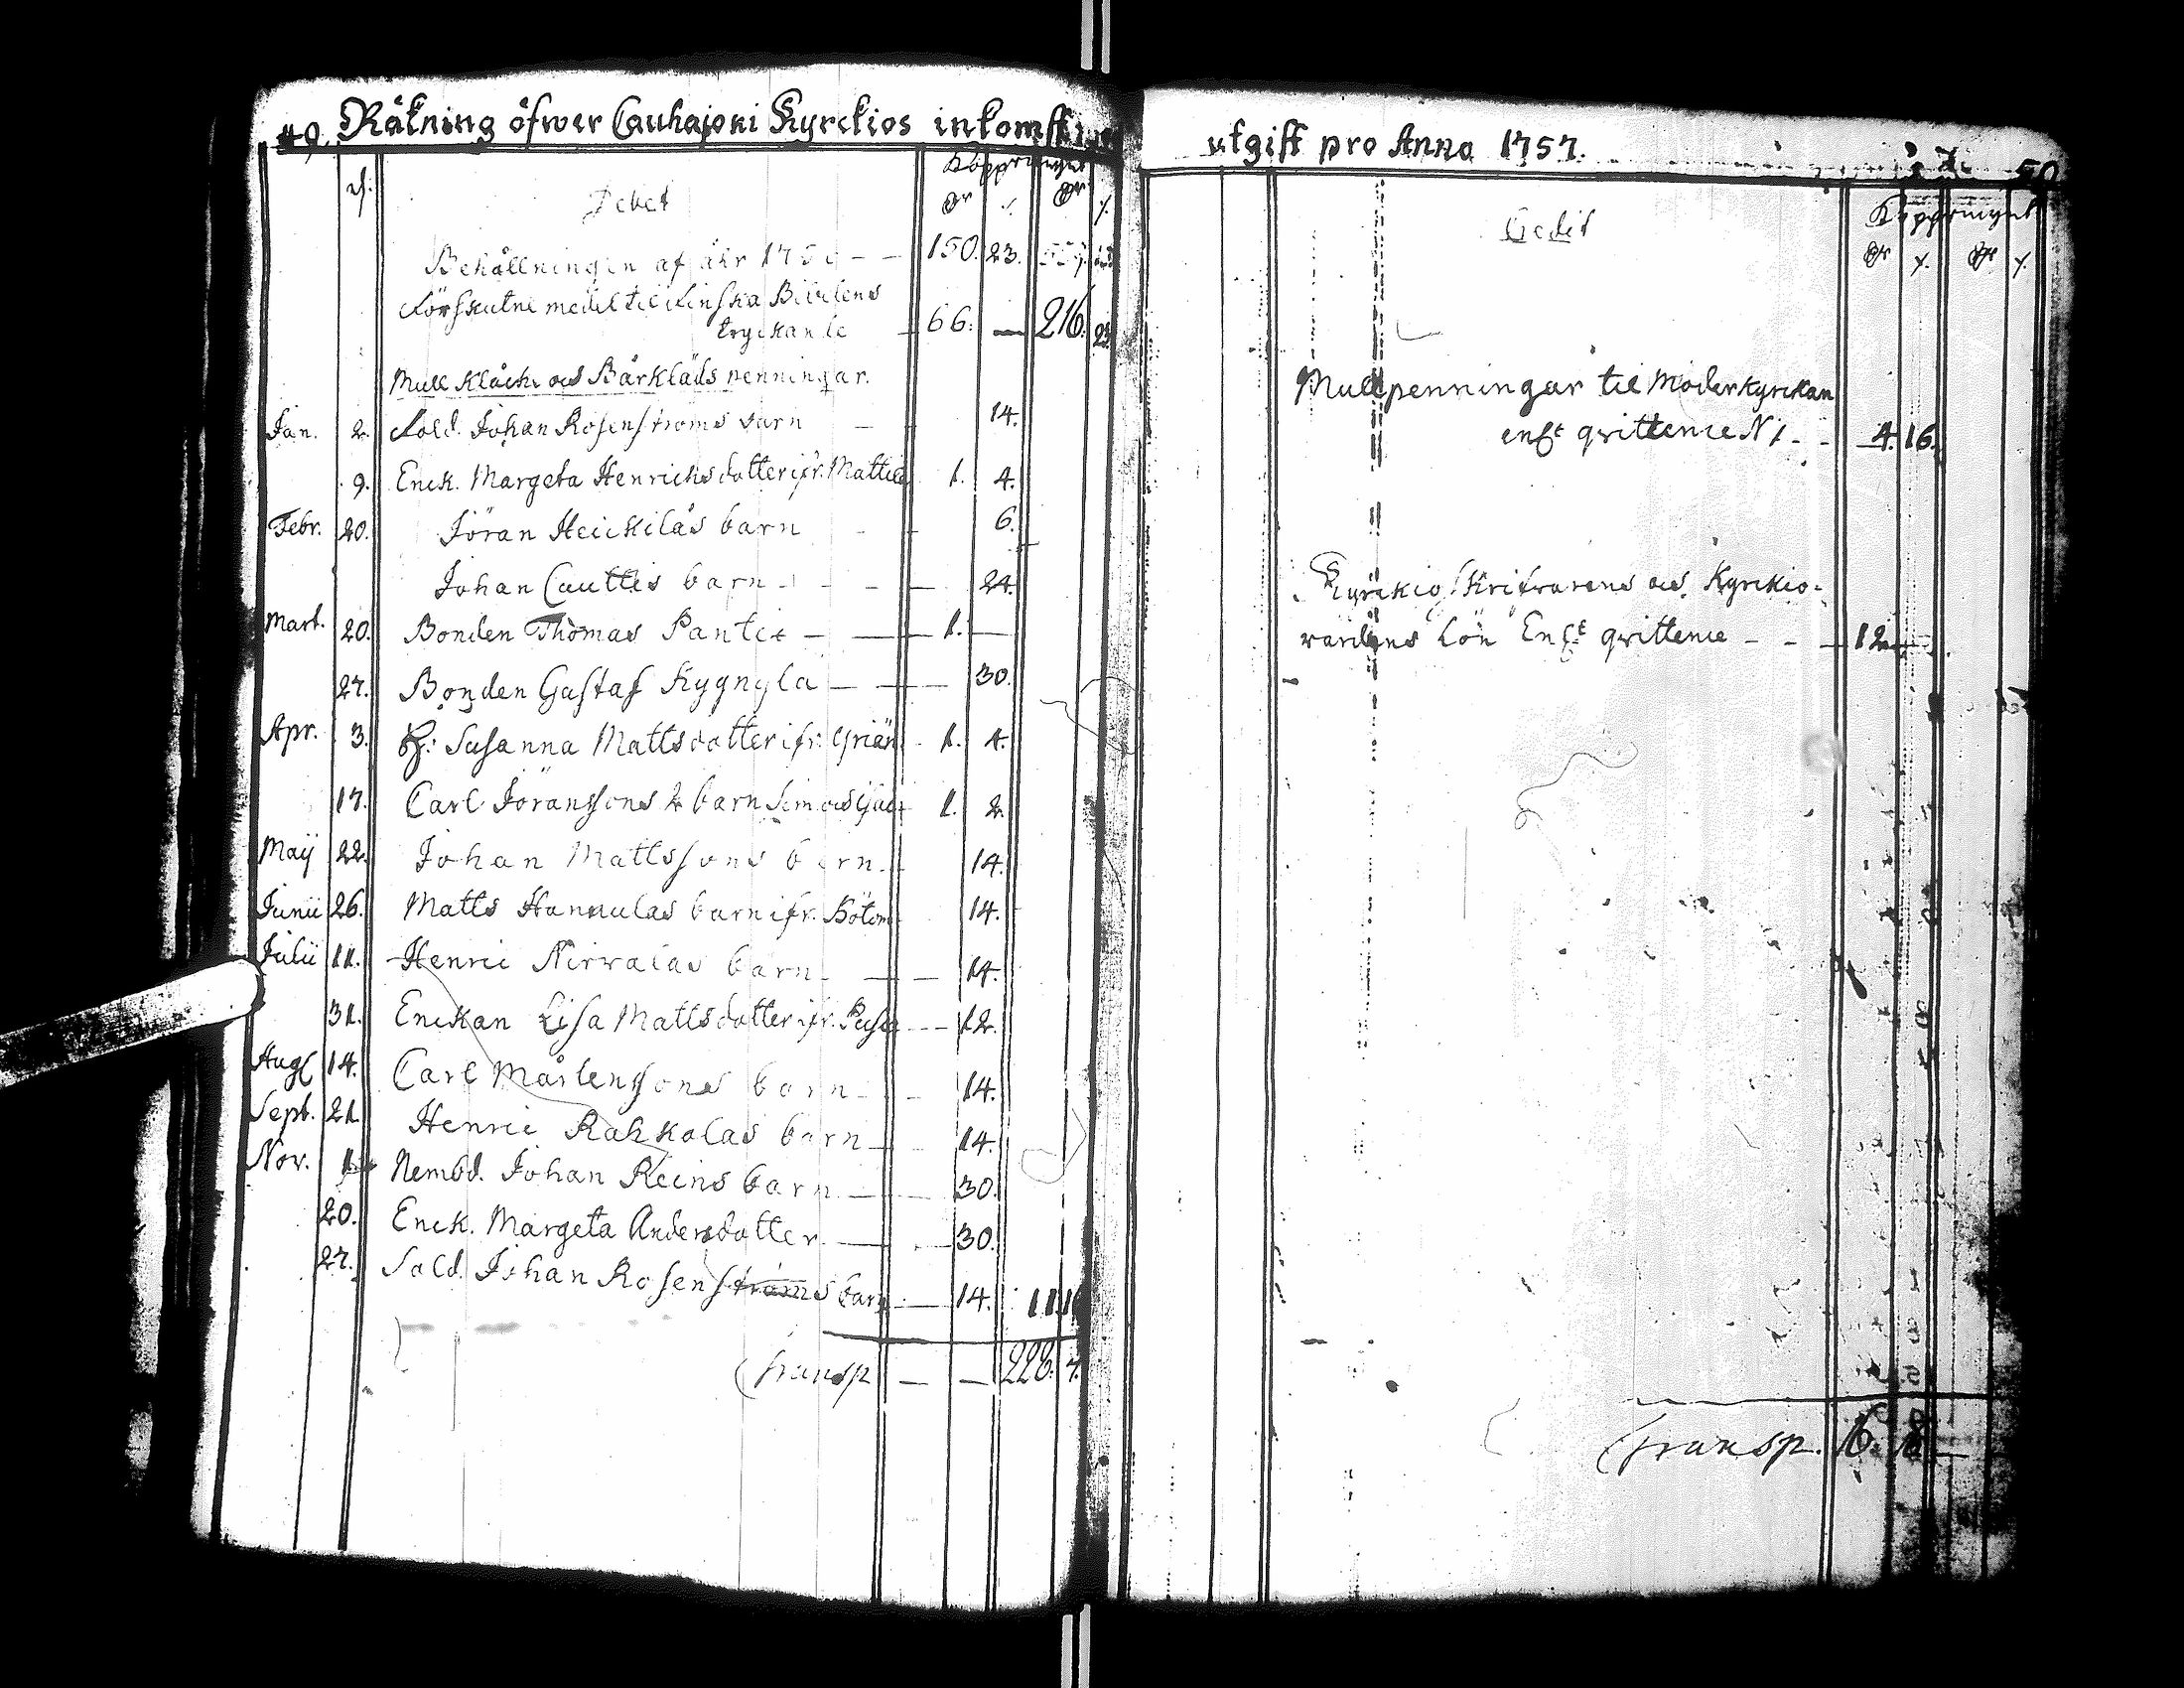 49. Räkning öfwer Cauhajoki Kyrckios inkomst
d.
Debet
Kopparmynt
Dr
Dr
Behållningen af åhr 175 — — 150. 23.
Förskutne medel til Finska Bibelens
tryckande — 66. — 216. 23
Mull Klåck. och Bårkläds penningar.
Jan. 2. Sold. Johan Rosenströms barn — — 14.
9. Enck. Margeta Henrichsdotter ifr. Mattila 1. 4.
Febr. 20. Jöran Heickiläs barn - - 6.
Johan Cauttis barn - - - — 24.
Mart. 20. Bonden Thomas Pantti — — 1. —
27. Bonden Gustaf Kygnylä — — 30.
Apr. 3. H: Susanna Mattsdotter ifr. 1. 4.
17. Carl Jöranssons 2 barn Sim och 1. 2.
Maij 22. Johan Mattssons barn. 14.
Junii 26. Matts Hannulas barn ifr. 14.
Julii 11. Henric Nirvalas barn — — 14.
31. Enckan Lisa Mattsdotter ifr. - - 12.
Aug 14. Carl Mårtenssons barn - - 14.
Sept. 21. Henric Rahkolas barn — 14.
Nov. 1 Nembd. Johan Reins barn — 30.
20. Enck. Margeta Andersdotter — — 30.
27. Sold. Johan Rosenströms barn — 14. 11.
Transp — — 228. 7.
utgift pro Anno 1757. 50
Credit
Kopparmynt
Dr
Dr
Mullpenningar til Moderkyrckan
enl:t qvittence N 1 - - 4. 16.
Kyrckioskrifvarens och Kyrckio-
vardens Lön Enl:t qvittence - - — 12. —
Transp. 16. 16 —